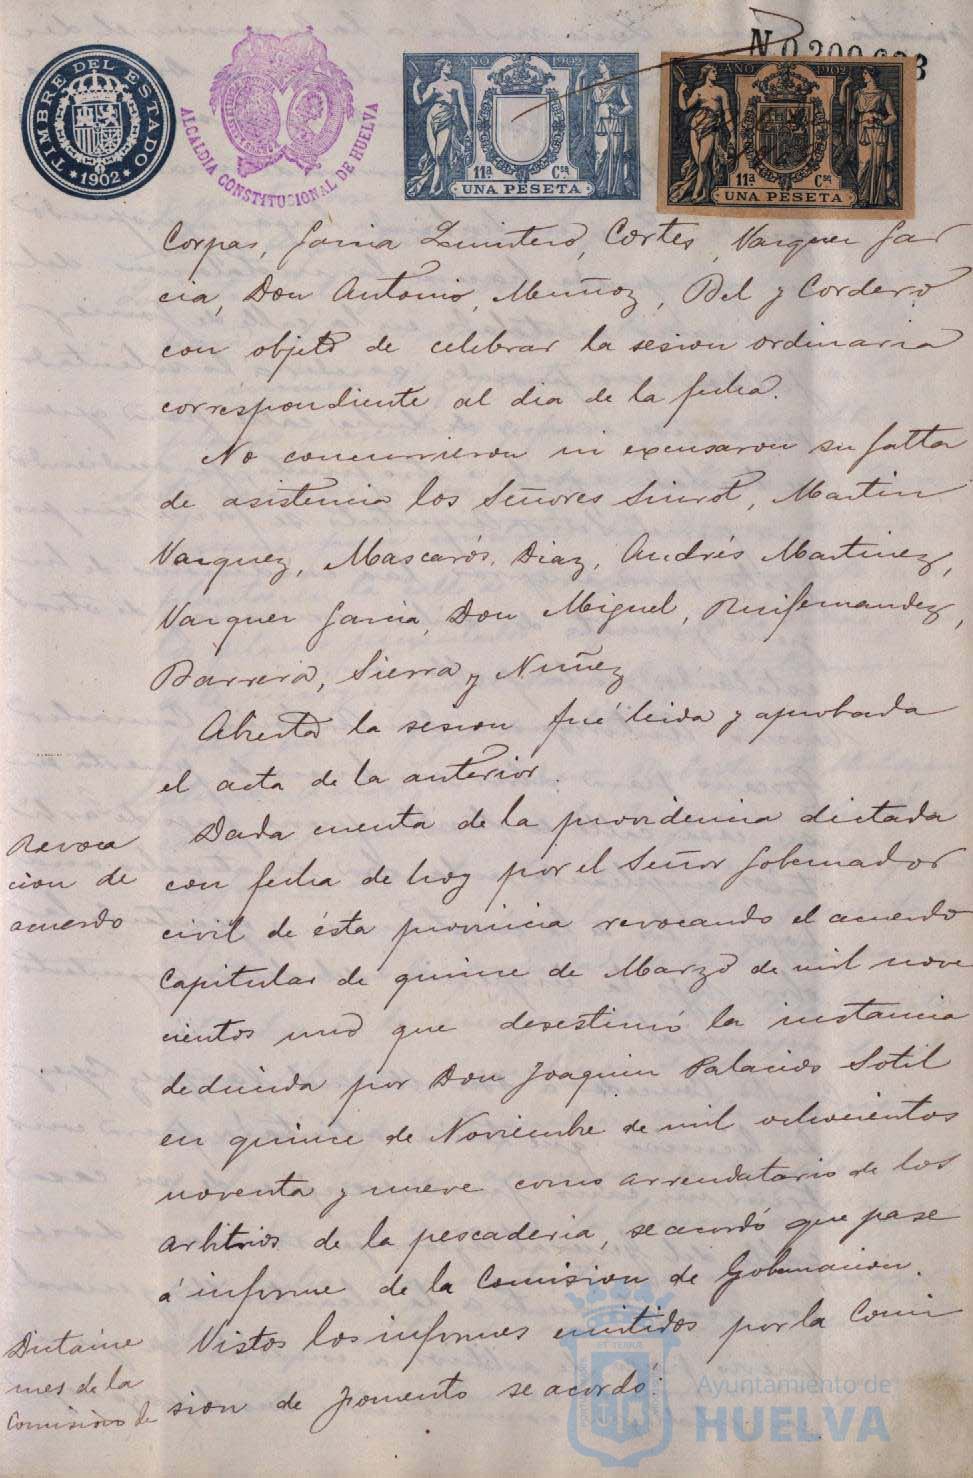 TIMBRE DEL ESTADO
* 1902 *
ALCALDIA CONSTITUCIONAL DE HUELVA
AÑO 1902
11ª Cse
UNA PESETA
N0
AÑO 1902
11ª Cse
UNA PESETA
Corpas, Garcia Quintero, Cortes, Vazquez Gar
cia, Don Antonio, Muñoz, Bel y Cordero
con objeto de celebrar la sesion ordinaria
correspondiente al dia de la fecha.
No concurrieron ni excusaron su falta
de asistencia los Señores Siurot, Martin
Vazquez, Mascarós, Diaz, Andrés Martinez,
Vazquez Garcia, Don Miguel, Ruifernandez,
Barrera, Sierra y Nuñez
Abierta la sesion fué leida y aprobada
el acta de la anterior.
Revoca
cion de
acuerdo
Dada cuenta de la providencia dictada
con fecha de hoy por el Señor Gobernador
civil de ésta provincia revocando el acuerdo
Capitular de quince de Marzo de mil nove
cientos uno que desestimó la instancia
deducida por Don Joaquin Palacios Sotil
en quince de Noviembre de mil ochocientos
noventa y nueve como arrendatario de los
arbitrios de la pescaderia, se acordó que pase
á informe de la Comision de Gobernacion.
Dictaме
nes de la
Comision de
Vistos los informes emitidos por la Comi
sion de Fomento se acordó:
Ayuntamiento de
HUELVA